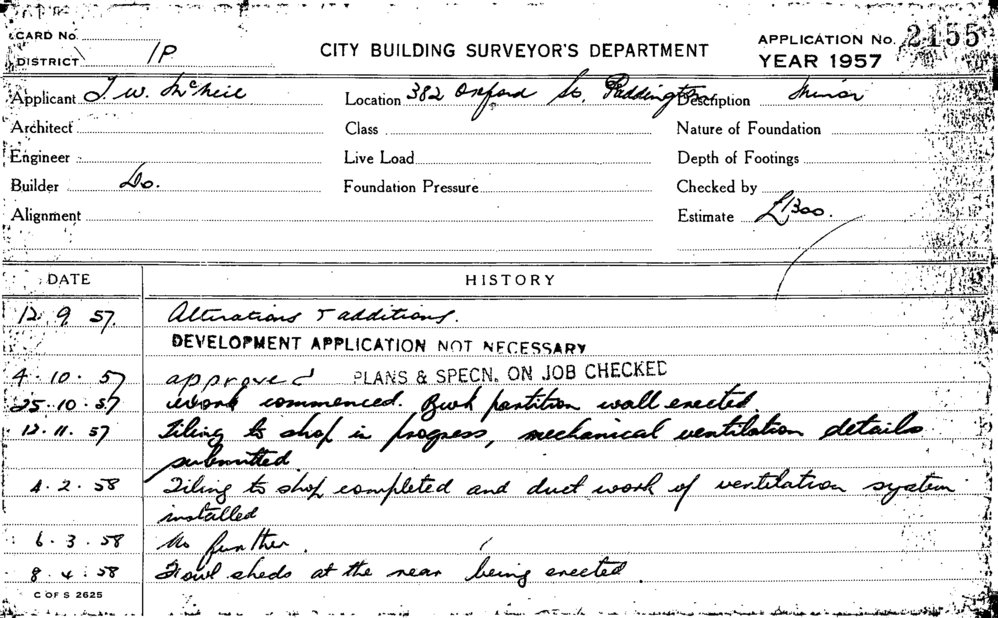 CARD No.
DISTRICT 1P
CITY BUILDING SURVEYOR'S DEPARTMENT
APPLICATION No. 2155
YEAR 1957
Applicant J. W. McNeil Location 382 Oxford St, Paddington Description Minor
Architect Class Nature of Foundation
Engineer Live Load Depth of Footings
Builder Do. Foundation Pressure Checked by
Alignment Estimate £1300.
DATE HISTORY
12. 9. 57. Alterations & additions.
DEVELOPMENT APPLICATION NOT NECESSARY
4. 10. 57 approved PLANS & SPECN. ON JOB CHECKED
25. 10. 57 work commenced. Bwk partition wall erected
12. 11. 57 Tiling to shop in progress, mechanical ventilation details
submitted
4. 2. 58 Tiling to shop completed and duct work of ventilation system
installed
6. 3. 58 No further.
8. 4. 58 Fowl sheds at the rear being erected.
C OF S 2625